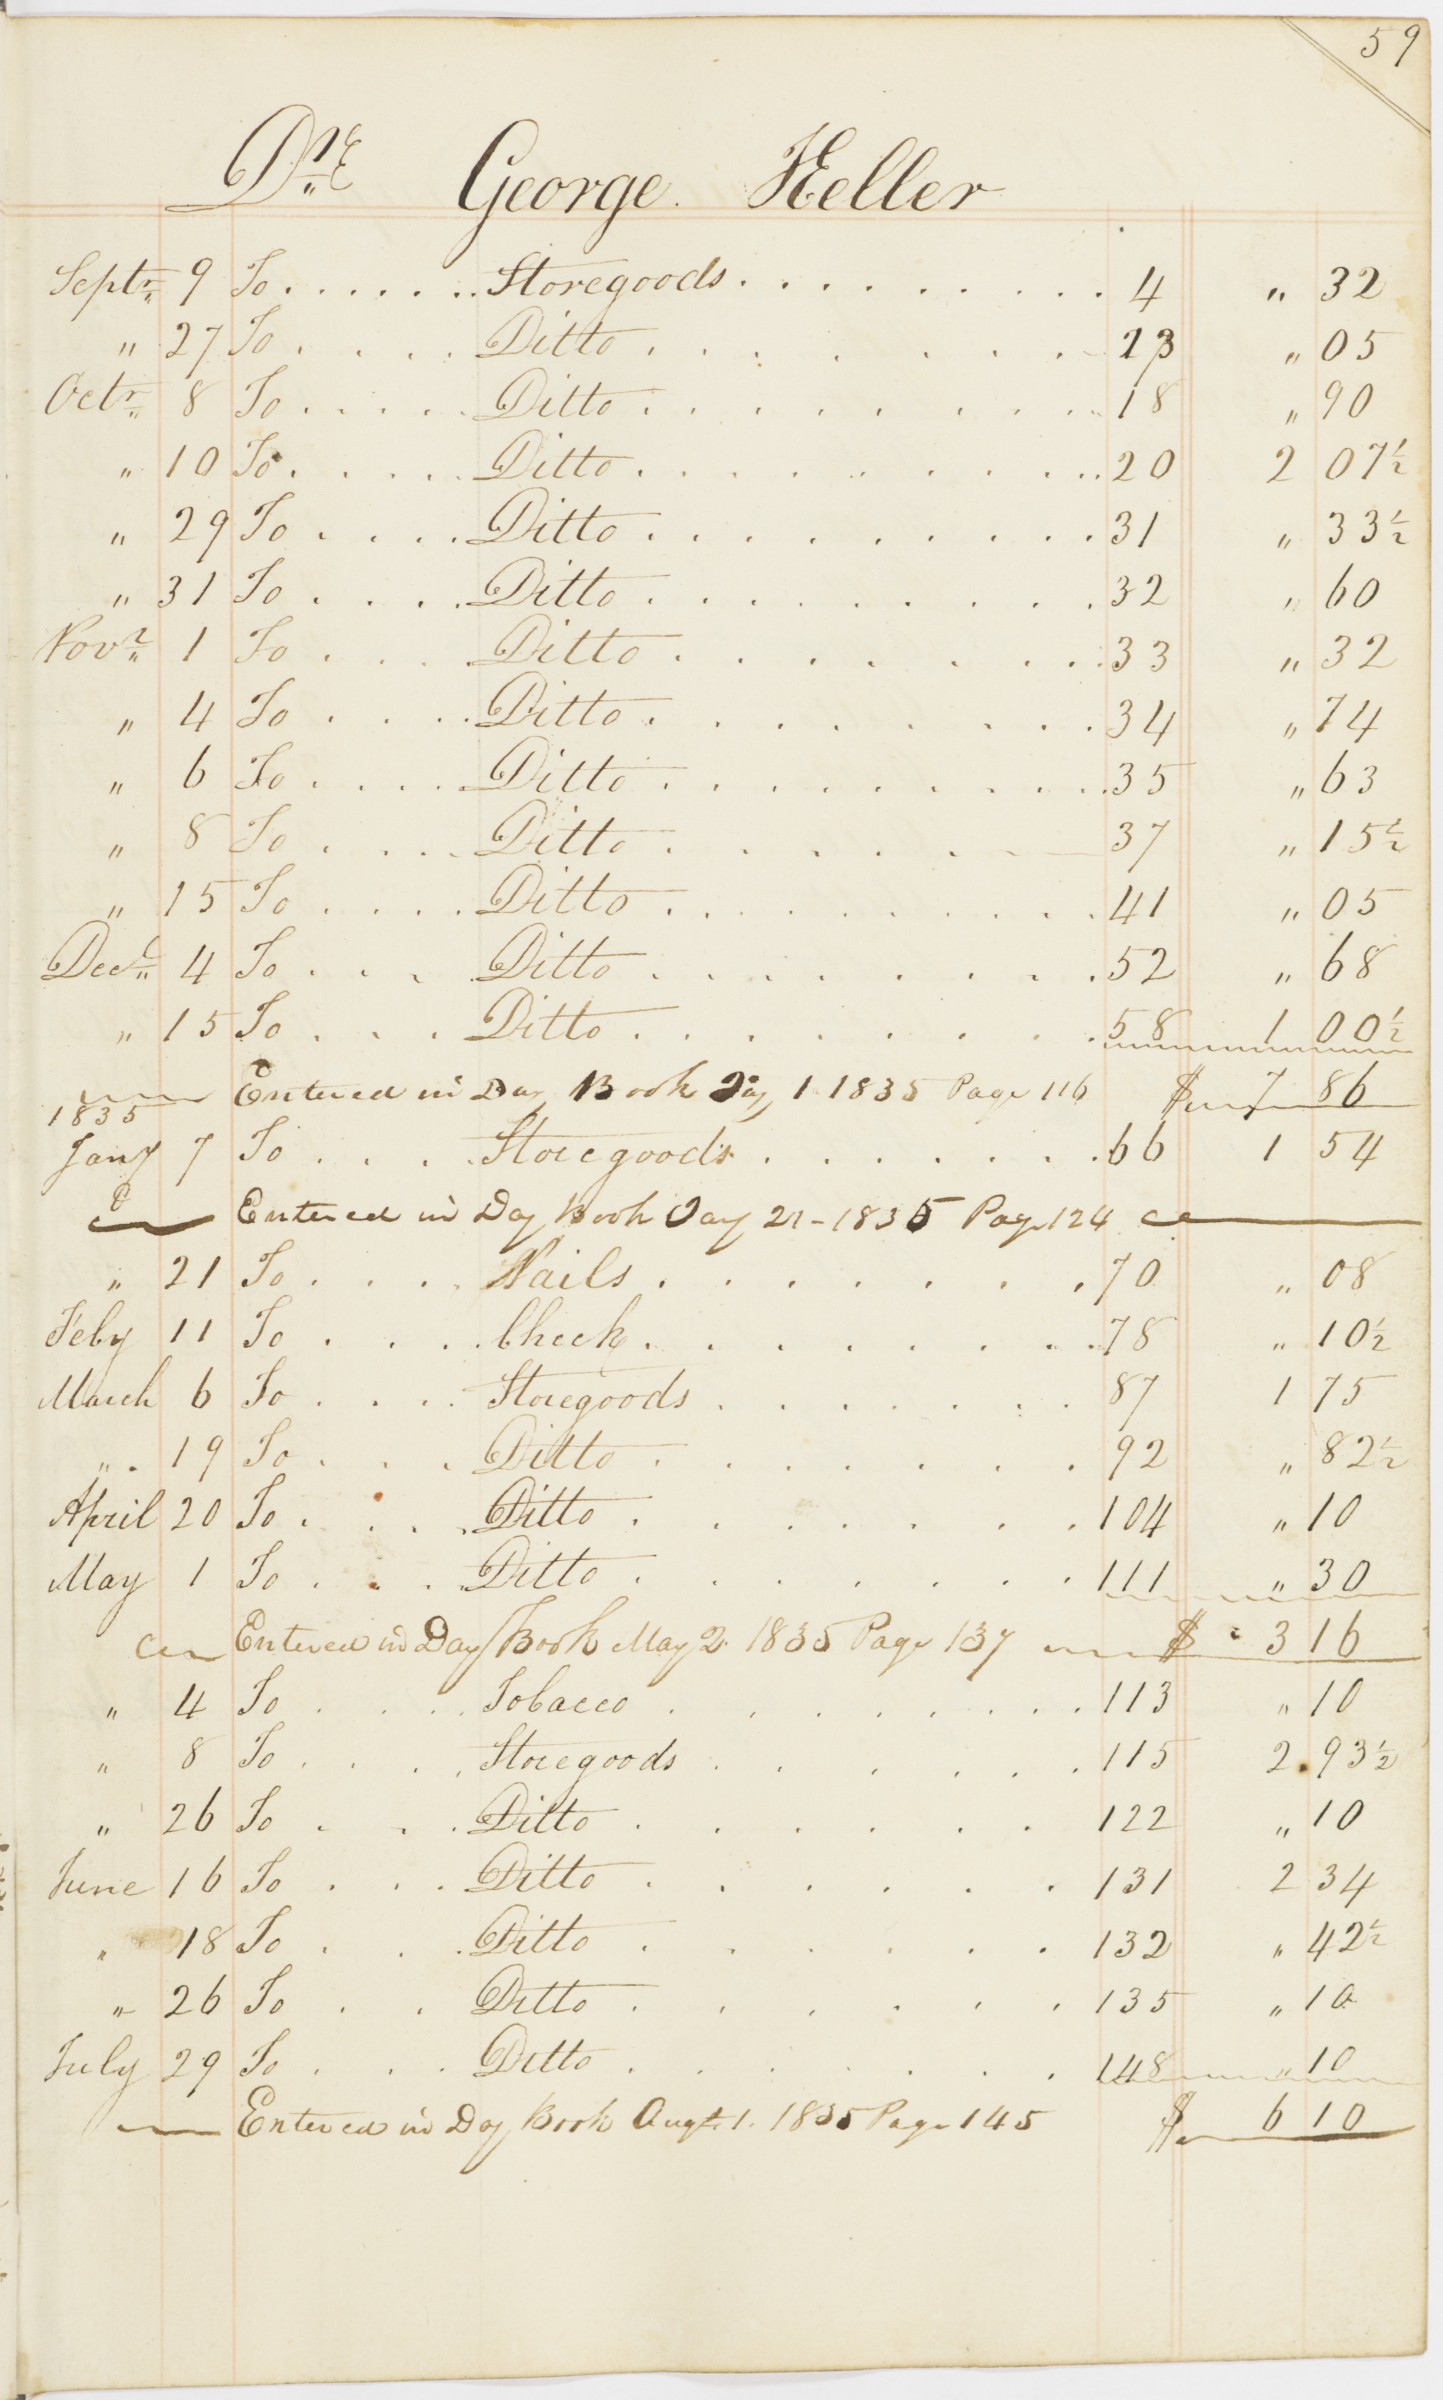 59
Dr. George Heller
Septr. 9 To Storegoods 4 " 32
" 27 To Ditto 13 " 05
Octr. 8 To Ditto 18 " 90
" 10 To Ditto 20 2 07½
" 29 To Ditto 31 " 33½
" 31 To Ditto 32 " 60
Novr. 1 To Ditto 33 " 32
" 4 To Ditto 34 " 74
" 6 To Ditto 35 " 63
" 8 To Ditto 37 " 15½
" 15 To Ditto 41 " 05
Decr. 4 To Ditto 52 " 68
" 15 To Ditto 58 1 00½
Entered in Day Book Jay 1 1835 Page 116 $ 7 86
1835
Jany 7 To Storegoods 66 1 54
Entered in Day Book Jay 21 - 1835 Page 124
" 21 To Nails 70 " 08
Feby 11 To Check 78 " 10½
March 6 To Storegoods 87 1 75
" 19 To Ditto 92 " 82½
April 20 To Ditto 104 " 10
May 1 To Ditto 111 " 30
Entered in Day Book May 2 1835 Page 137 $ 3 16
" 4 To Tobacco 113 " 10
" 8 To Storegoods 115 2 93½
" 26 To Ditto 122 " 10
June 16 To Ditto 131 2 34
" 18 To Ditto 132 " 42½
" 26 To Ditto 135 " 10
July 29 To Ditto 148 " 10
Entered in Day Book Augt. 1. 1835 Page 145 $ 6 10